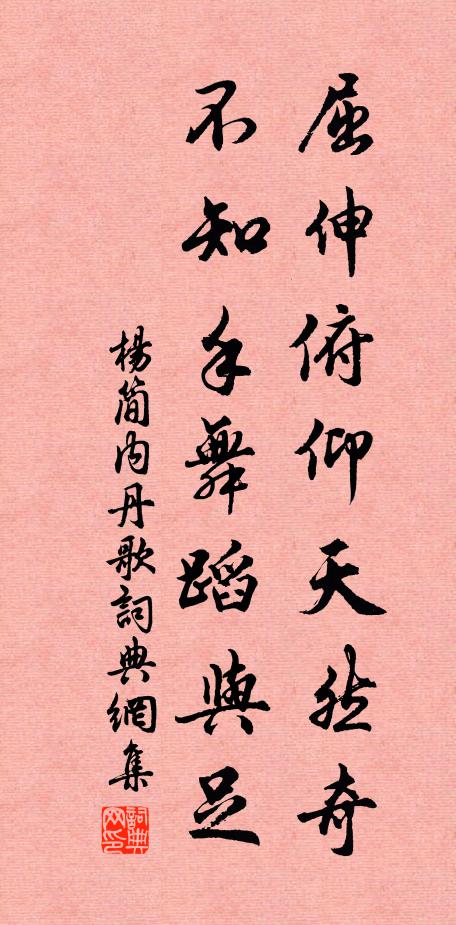 屈伸俯仰天然奇
不知手舞蹈與足
楊簡内丹歌詞典網集
詞典网印